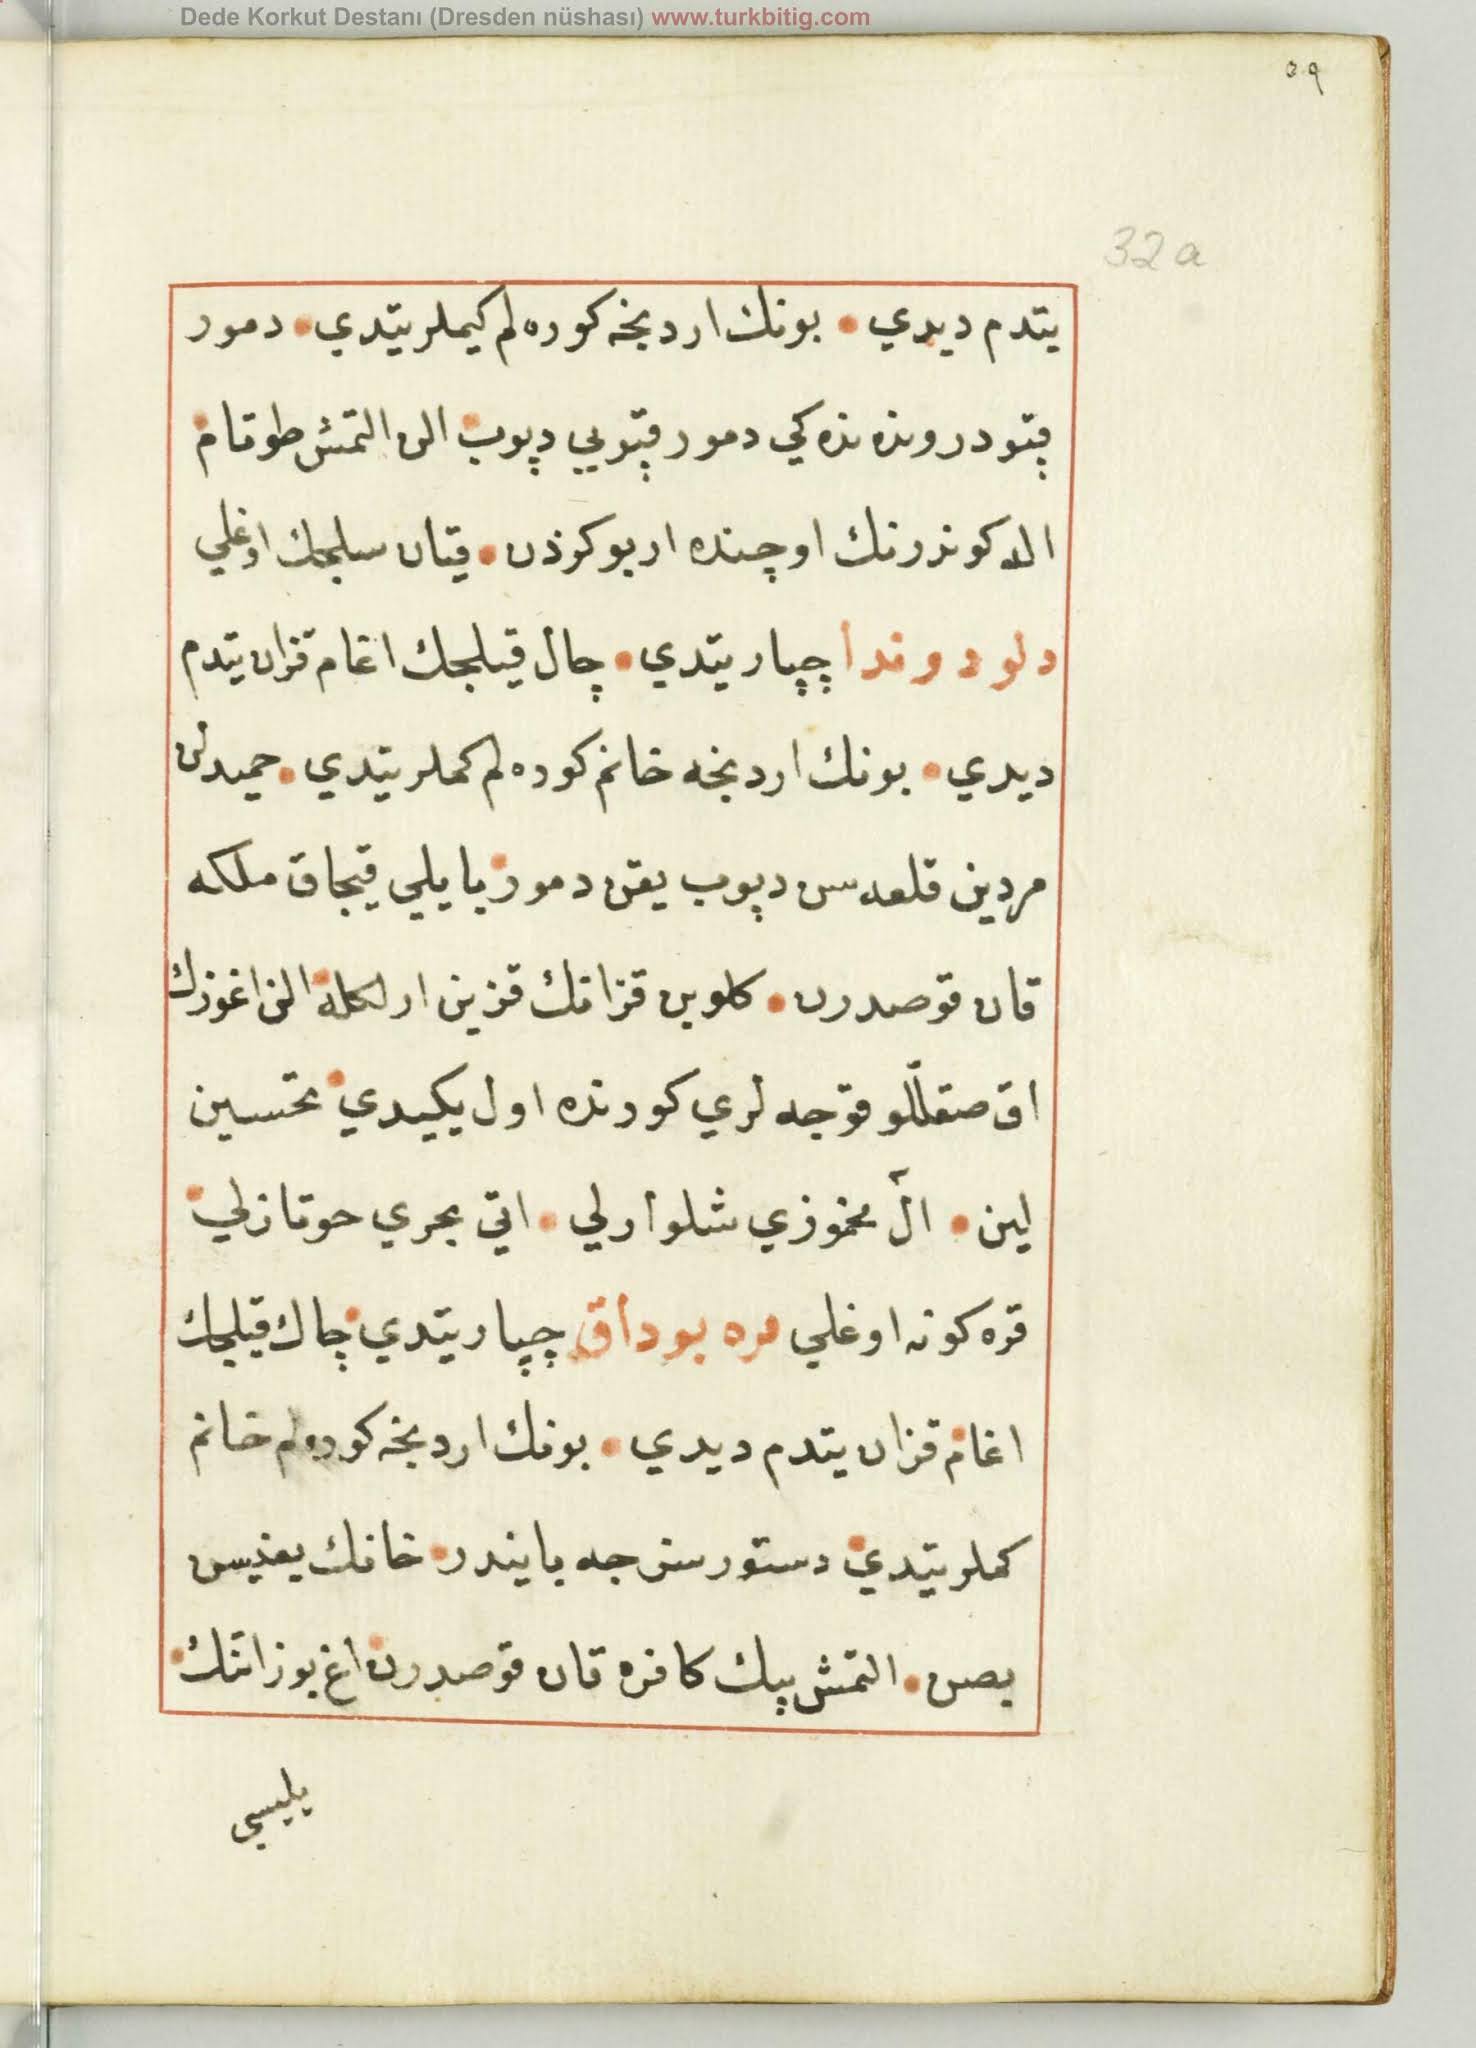 Dede Korkut Destanı (Dresden nüshası) www.turkbitig.com
٥٩
32a
يتدم ديدي • بونك اردنجه كوره لم كيملر يتدي • دمور
قپو دروندە ندە كي دمور قپويي دپوب الن التمش طوتام
الله كوندرنك اوچنده ار بوكوذن • قيان سلجك اوغلي
دلو دوندا چپار يتدي • چال قيلجك اغام قزان يتدم
ديدي • بونك اردنجه خانم كوره لم كملر يتدي • حميدلن
مردين قلعه سن دپوب يقن دمور يايلي قپچاق ملكه
قان قوصدرن • كلوبن قزانك قزين ارلكله الن اغوزك
اق صقللو قوجه لري كورنده اول يكيدي تحسين
لين • ال مخموزي شلوارلي • اتي بحري حوتازلي
قره كونه اوغلي قره بوداق چپار يتدي چال قيلجك
اغام قزان يتدم ديدي • بونك اردنجه كوره لم خانم
كملر يتدي دستورسز جه بايندر • خانك يغيسن
بصن • التمش بيك كافره قان قوصدرن اغ بوز اتنك
يليسي